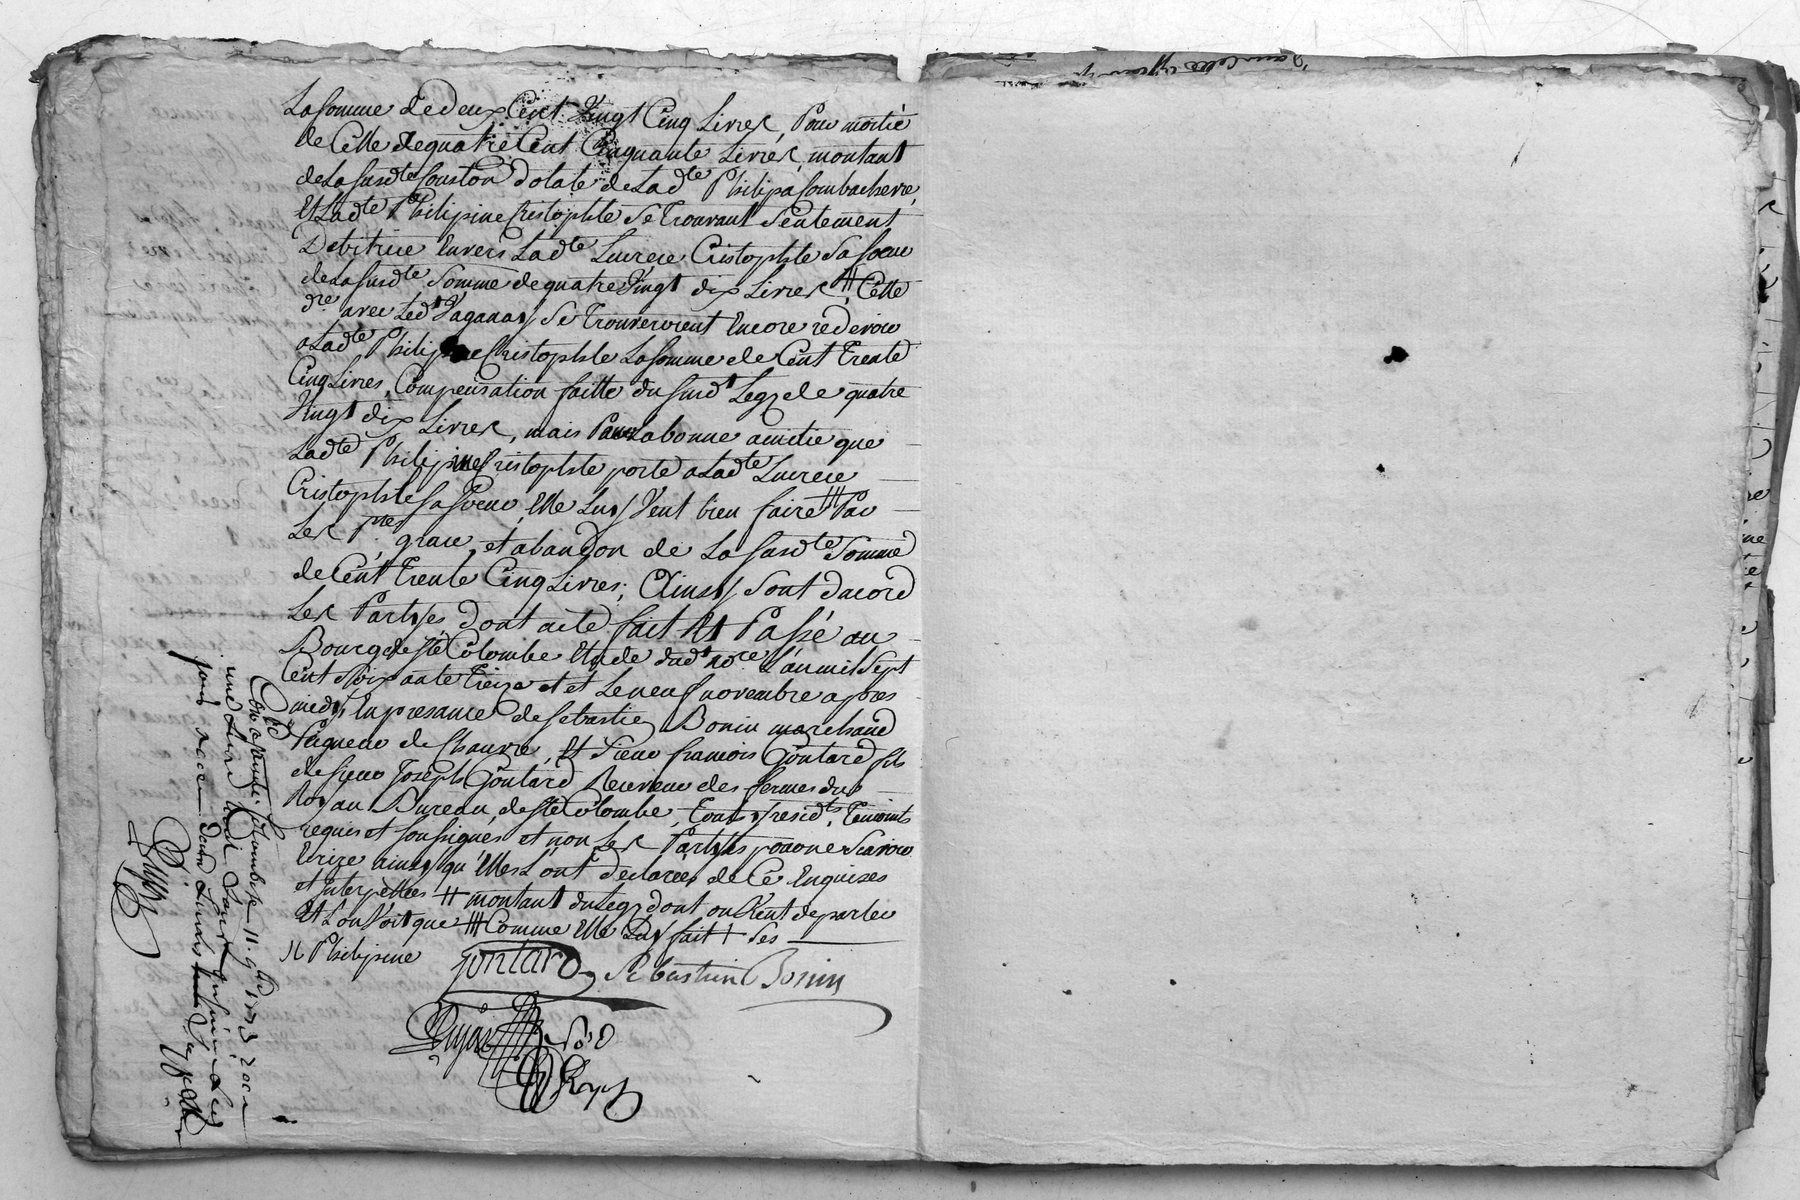 La Somme de deux Cent Vingt Cinq Livres, Pour moitié
de Celle de quatre Cent Cinquante Livres, montant
de La susdte Constōn dotale de Ladte Philipa
Et Ladte Philipine Cristophle se Trouvant seulement
Debitrice Envers Ladte Lucrece Cristophle sa soeur
de La susdte somme de quatre Vingt dix Livres # Cette
dre avec Ledt Vaganay se Trouveroient Encore redevoir
a Ladte Philipine Cristophle La somme de Cent Trente
Cinq Livres, Compensation faitte du susdt Legz de quatre
Vingt dix Livres, mais Pour La bonne amitié que
Ladte Philipine Cristophle porte a Ladte Lucrece
Cristophle sa soeur, Elle Luy Veut bien faire # Par
Les Ptes grace, et abandon de La susdte Somme
de Cent Trente Cinq Livres; Ainsy sont dacord
Les Partyes dont acte fait Et Passé au
Bourg de Ste Colombe Etude dudt nore L'an mil Sept
Cent Soixante Treize et et Le neuf novembre apres
midy, En presance de sebastien Bonin marchand
Peigneur de Chanvre, Et Sieur francois Gontard fils
de sieur Joseph Gontard Receveur des fermes du
Roy au Bureau de Ste Colombe, Tous y residts, Temoints
requis et soussignés et non Les Partyes pour ne scavoir
Ecrire ainsy qu'Elles L'ont declarées de Ce Enquises
et Interpellées # montant du Legz dont on Vient de parler
Et L'on Voit que # Comme Elle Luy fait + ses
// Philipine
gontard Sebastien Bonin
Conte a Ste Colombe le 11 9bre 1773